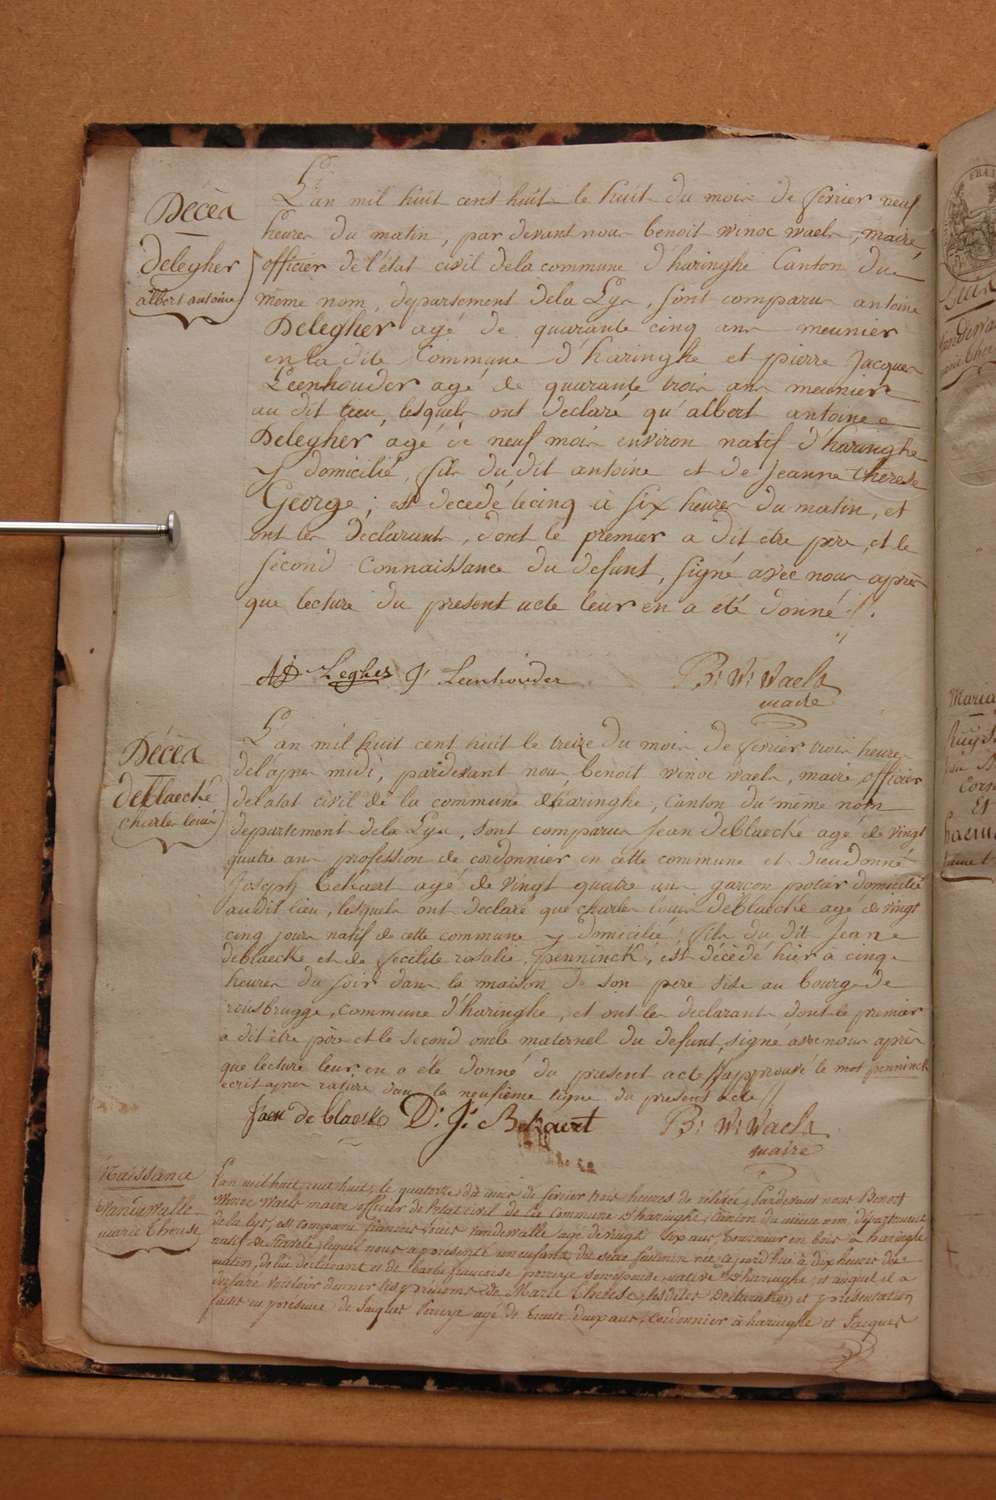 Décès
Delegher
albert antoine
L'an mil huit cent huit le huit du mois de fevrier neuf
heures du matin, par devant nous benoit winoc waels, maire,
officier de l'état civil dela commune d'haringhe Canton du
même nom, departement dela Lys, sont comparus antoine
Delegher agé de quarante cinq ans meunier
en la dite Commune d'haringhe et pierre Jacques
Leenhouder agé de quarante trois ans meunier
au dit lieu, lesquels ont declaré, qu'albert antoine
Delegher agé de neuf mois environ natif d'haringhe
y domicilié, fils du dit antoine et de jeanne therese
George; est decedé le cinq à six heures du matin, et
ont les declarants, dont le premier a dit etre pere, et le
second connaissance du defunt, signé avec nous après
que lecture du present acte leur en a été donné //.
Leghes J. Leenhouder B: W: Waels
maire
Décès
deblaecke
charles louis
L'an mil huit cent huit le treize du mois de fevrier trois heures
del'apres midi, pardevant nous, benoit winoc waels, maire, officier
del'etat civil de la commune d'haringhe, Canton du même nom
departement dela Lys, sont comparus jean deblaecke agé de vingt
quatre ans profession de cordonnier en cette commune et dieudonné
joseph bekaert agé de vingt quatre ans garçon potier domicilié
audit lieu, lesquels ont declaré que charles louis deblaecke agé de vingt
cinq jours natif de cette commune y domicilié, fils du dit jean
deblaecke et de rosalie penninck, est décèdé hier à cinq
heures du soir dans la maison de son pere sise au bourg de
rousbrugge, commune d'haringhe, et ont les declarants dont le premier
a dit être père et le second oncle maternel du defunt, signé avec nous après
que lecture leur en a été donné du present acte // approuvé le mot penninck
ecrit apres rature dans la neufieme ligne du present acte //
jaen de blaecke D: J: Bekaert B: W: Waels
maire
Naissance
Vandewalle
marie therese
L'an mil huit cent huit, le quatorze du mois de fevrier trois heures de relevée, Pardevant nous Benoit
Winoc Waels maire officier de l'etat civil de la Commune d'haringhe, Canton du même nom, departement
de la Lys, est comparu francois louis vandewalle agé de vingt six ans, tourneur en bois à haringhe
natif de lequel nous a presenté un enfant du sexe feminin née aujourd'hui à dix heures du
matin, de lui declarant et de barbe francoise son epouse, native d'haringhe, et auquel il a
declaré vouloir donner les prénoms de Marie Therese, lesdites declaration et présentation
faite en presence de Jacques agé de trente deux ans, cordonnier à haringhe et Jacques